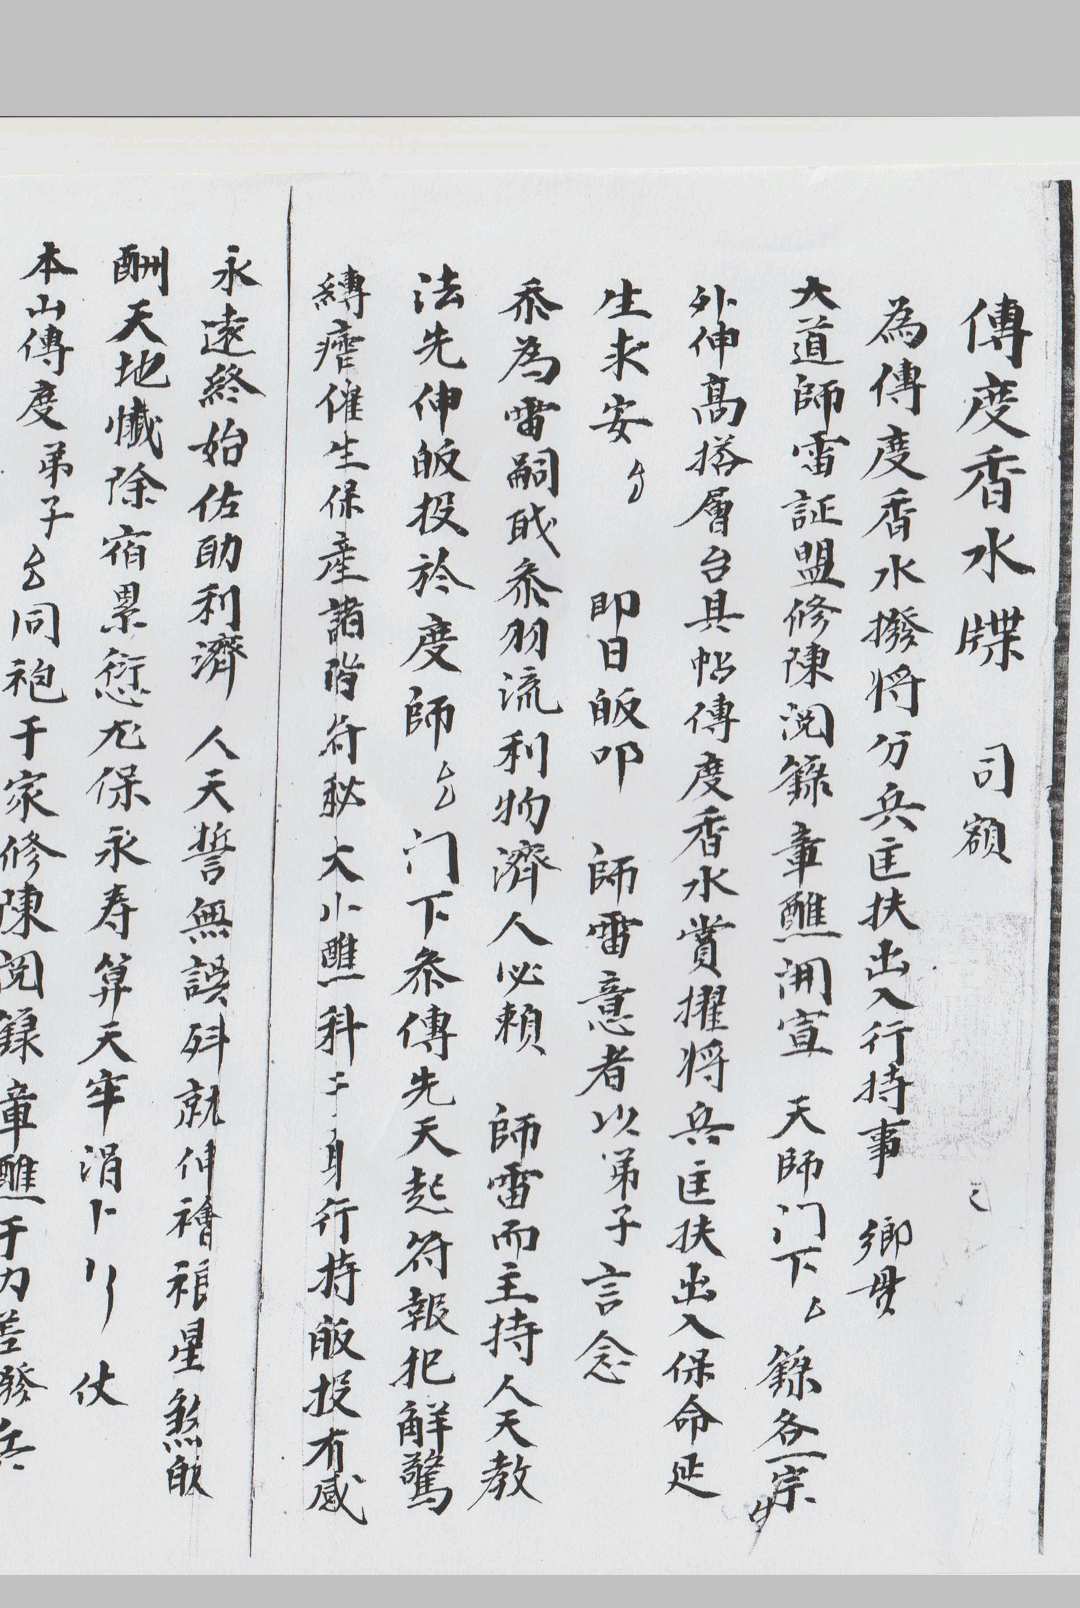 傳度香水牒 司額
為傳度香水撥将分兵匡扶出入行持事 鄉貫
大道師雷証盟修陳閱籙章醮開宣 天師門下厶 籙各一宗
外伸高搭層台具帖傳度香水賞擢将兵匡扶出入保命延
生求安 即日皈叩 師雷意者以弟子言念
忝為雷嗣戝忝羽流利物濟人必賴 師雷而主持人天教
法先伸皈投於度師厶门下忝傳先天起符報犯解驚
縛瘄催生保產諸階符秘大小醮科 身行持皈投有感
永遠終始佐助利濟 人天誓無誤 就伸禬禳星煞皈
酬天地懺除宿累愆尤保永寿算天牢涓卜 仗
本山傳度弟子厶同袍于家修陳閱籙章醮于內差撥兵